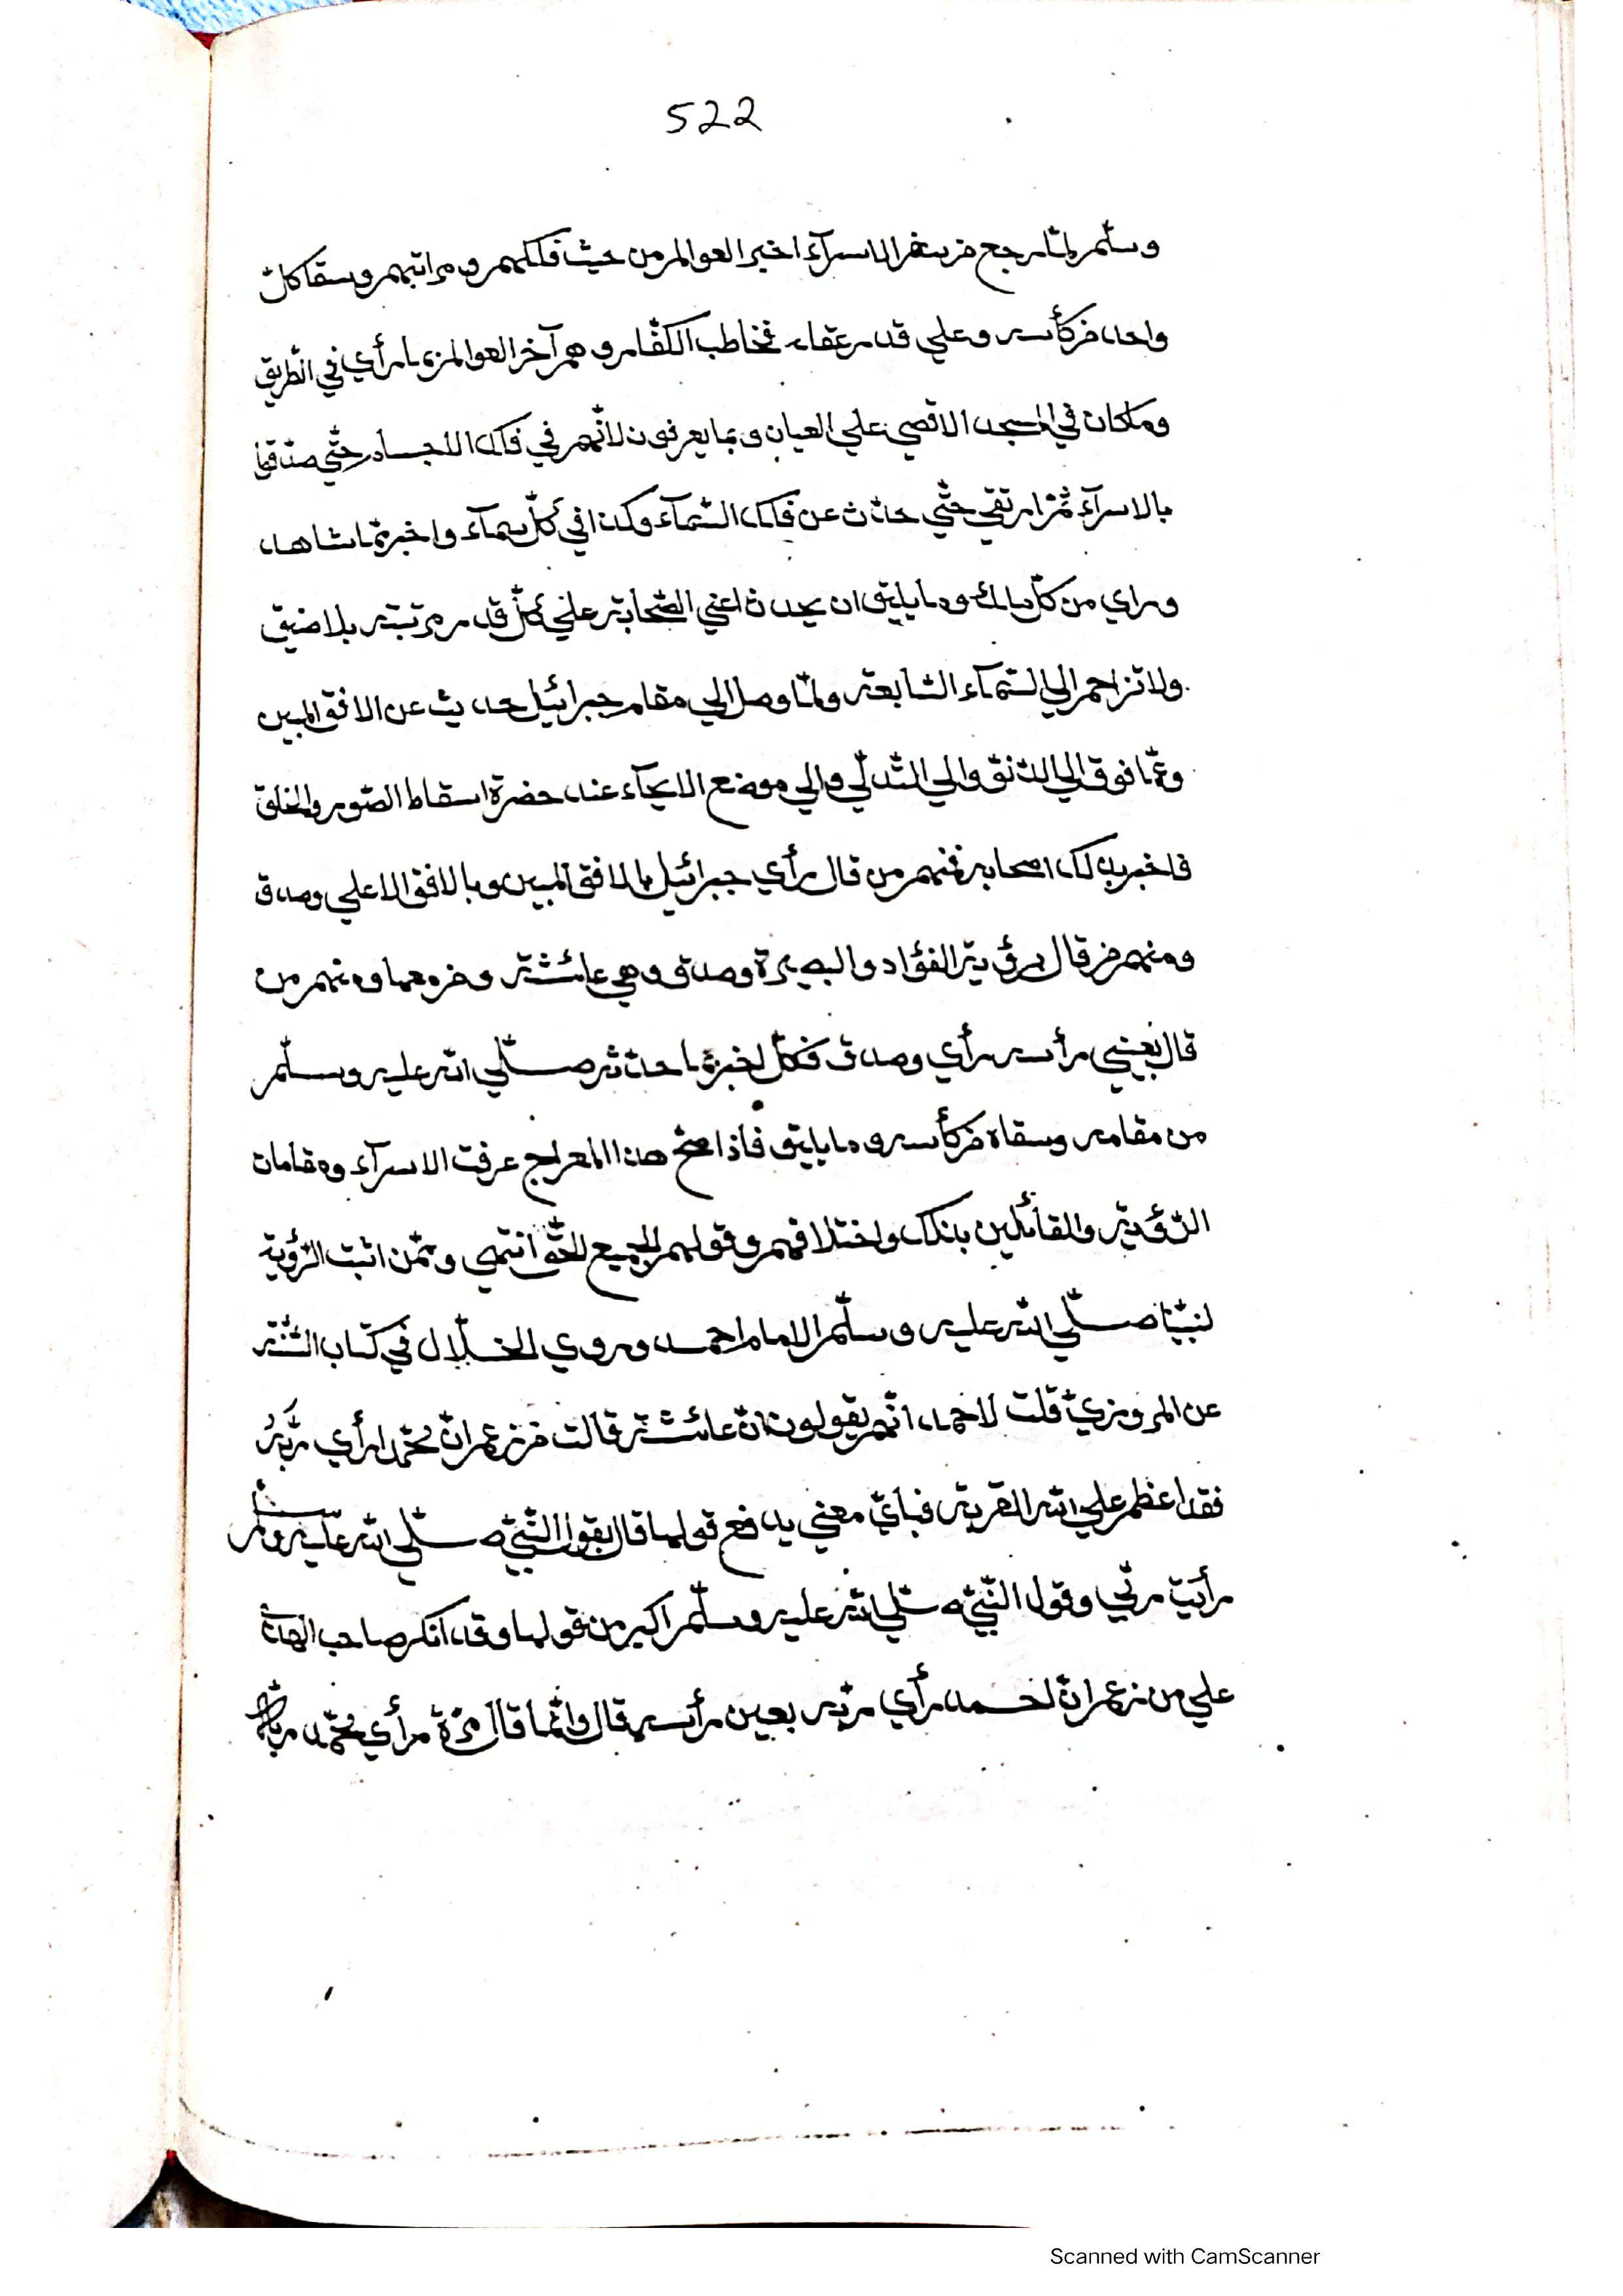 522
وسلّم لمّا رجع من سفر الاسرآء اخبر العوالم من حيث فلكهم ومراتبهم وسقا كلّ
واحد من كأسه وعلي قدر عقله فخاطب الكفّار وهم آخر العوالم بما رأي في الطّريق
وما كان في المسجد الاقصي علي العيان وبما يعرفون لانّهم في فلك الاجساد حتّي صدّقوا
بالاسرآء ثمّ ارتقي حتّي حدّث عن فلك السّمآء وكذا في كلّ سمآء واخبر بما شاهد
وراي من كلّ مالك وما يليق ان يحدث اعني الصّحابة علي كلّ قدر مرتبته بلا ضيق
ولا تزاحم الي السّمآء السّابعة ولمّا وصل الي مقام جبرائيل حديث عن الافق المبين
وعمّا فوق الي الدّنوّ والي التّدلّي والي موضع الايحآء عند حضرة اسقاط الصّور والخلق
فاخبر بذلك اصحابه فمنهم من قال رأي جبرائيل بالافق المبين وبالافق الاعلي وصدق
ومنهم من قال برؤية الفؤاد والبصيرة وصدق وهي عائشة ومن معها ومنهم من
قال بعيني رأسه رأي وصدق فكلّ اخبر بما حدّثه صلّي الله عليه وسلّم
من مقامه وسقاه من كأسه وما يليق فاذا صحّ هذا المعراج عرفت الاسرآء ومقامات
الرّؤية والقائلين بذلك واختلافهم وقولهم الجميع للحقّ انتهي وممّن اثبت الرّؤية
لنبيّنا صلّي الله عليه وسلّم الامام احمد وروي الخلّال في كتاب السّنّة
عن المروزيّ قلت لاحمد انّهم يقولون انّ عائشة قالت من زعم انّ محمّدا رأي ربّه
فقد اعظم علي الله الفرية فبأيّ معني يدفع قولها قال بقول النّبيّ صلّي الله عليه وسلّم
رأيت ربّي وقول النّبيّ صلّي الله عليه وسلّم اكبر من قولها وقد انكر صاحب الهدي
علي من زعم انّ احمد رأي ربّه بعين رأسه قال وانّما قال مرّة رأي محمّد ربّه
Scanned with CamScanner